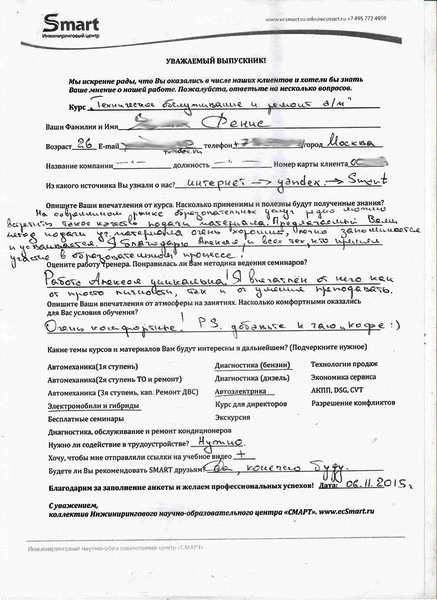 Smart
Инжиниринговый центр
www.ecsmart.ru info@ecsmart.ru +7 495 772 4959
УВАЖАЕМЫЙ ВЫПУСКНИК!
Мы искренне рады, что Вы оказались в числе наших клиентов и хотели бы знать
Ваше мнение о нашей работе. Пожалуйста, ответьте на несколько вопросов.
Курс „Техническое обслуживание и ремонт а/м"
Ваши Фамилия и Имя Фенис
Возраст 26 E-mail yandex.ru телефон +7 город Москва
Название компании —"— должность —"— Номер карты клиента
Из какого источника Вы узнали о нас? интернет → yandex → Smart
Опишите Ваши впечатления от курса. Насколько применимы и полезны будут полученные знания?
На современном рынке образовательных услуг редко можно
встретить такое качество подачи материала. Предлагаемый Вами
метод подачи уч. материала очень хороший, легко запоминается
и усваивается. Я благодарю Алексея и всех, кто принял
участие в образовательном процессе!
Оцените работу тренера. Понравилась ли Вам методика ведения семинаров?
Работа Алексея уникальна! Я впечатлён от него как
от просто личности, так и от умения преподавать.
Опишите Ваши впечатления от атмосферы на занятиях. Насколько комфортными оказались
для Вас условия обучения?
Очень комфортные! P.S. добавьте к чаю „кофе :)
Какие темы курсов и материалов Вам будут интересны в дальнейшем? (Подчеркните нужное)
Автомеханика(1я ступень) Диагностика (бензин) Технологии продаж
Автомеханика(2я ступень ТО и ремонт) Диагностика (дизель) Экономика сервиса
Автомеханика(3я ступень, кап. Ремонт ДВС) Автоэлектрика АКПП, DSG, CVT
Электромобили и гибриды Курс для директоров Разрешение конфликтов
Бесплатные семинары Экскурсия
Диагностика, обслуживание и ремонт кондиционеров
Нужно ли содействие в трудоустройстве? Нужно.
Хочу, чтобы мне отправляли ссылки на учебное видео +
Будете ли Вы рекомендовать SMART друзьям? Да, конечно буду.
Благодарим за заполнение анкеты и желаем профессиональных успехов! Дата: 06.11.2015г
С уважением,
коллектив Инжинирингового научно-образовательного центра «СМАРТ». www.ecSmart.ru
Инжиниринговый научно-образовательный центр «СМАРТ»